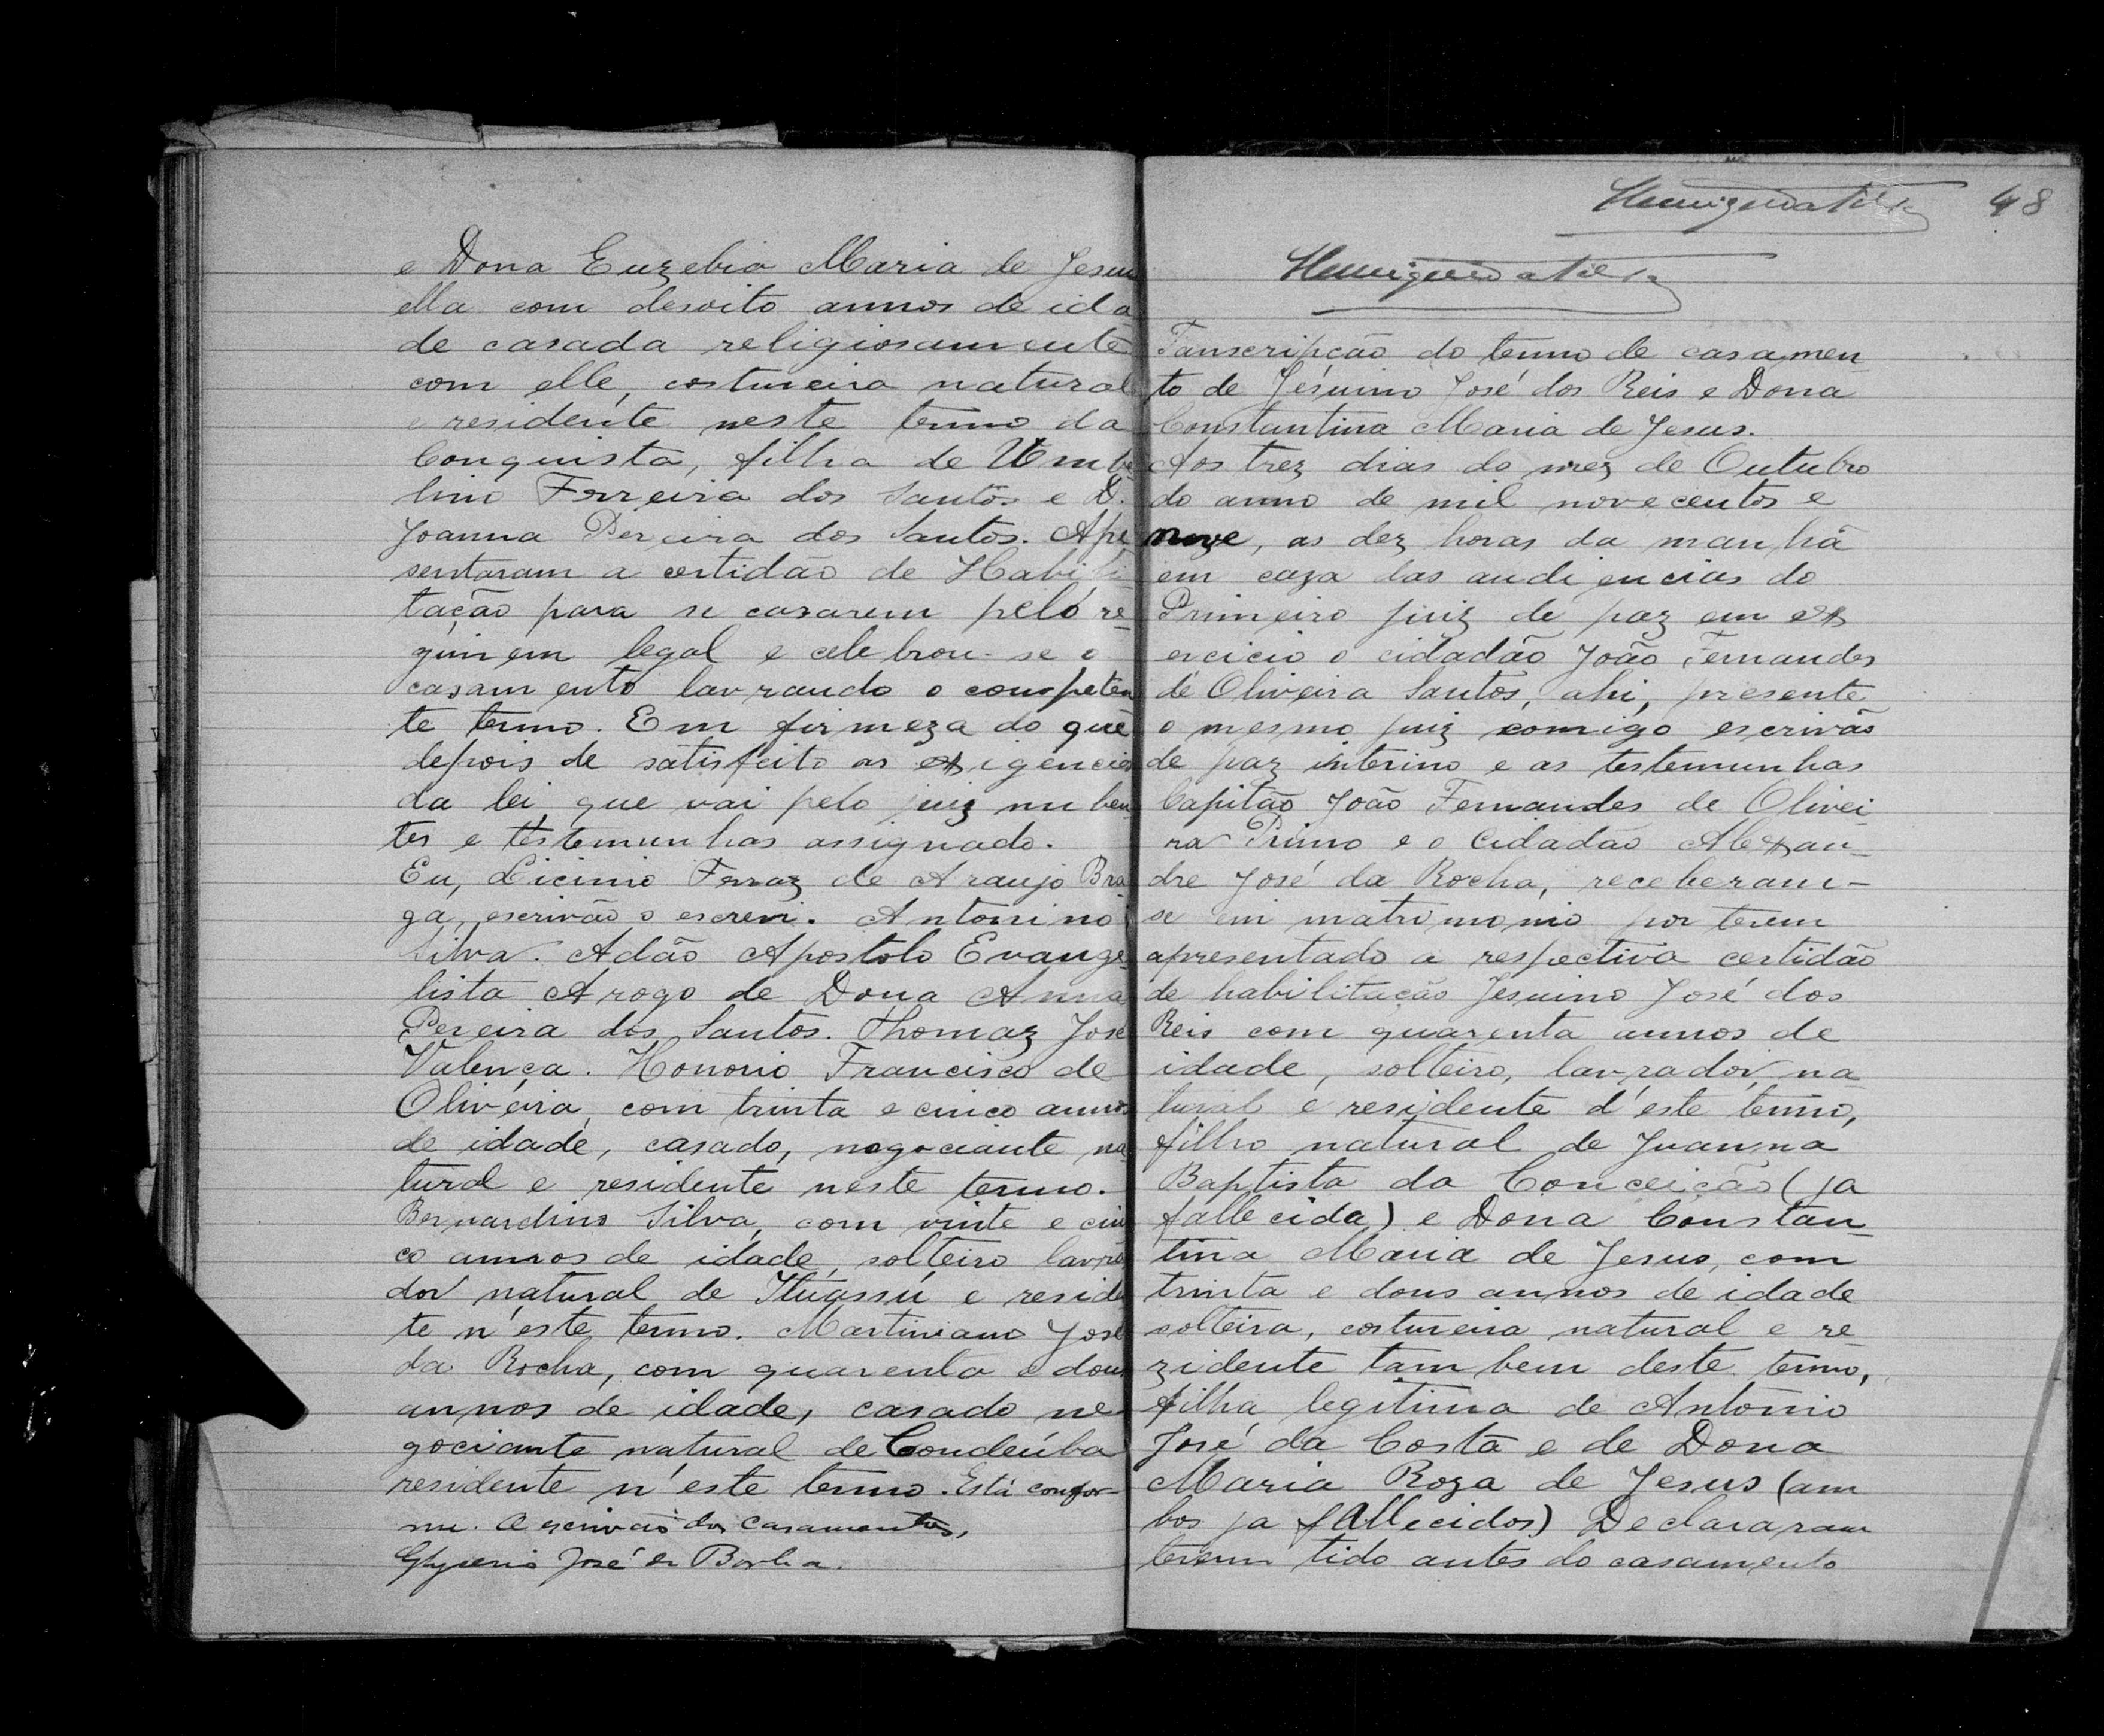 e Dona Euzebia Maria de Jesus
ella com desoito annos de ida
de casada religiosamente
com elle, costureira natural
e residente neste termo da
Conquista, filha de Umbe
lino Ferreira dos Santos e D.
Joanna Pereira dos Santos. Apre
sentaram a certidão de Habili
tação para se casarem pelo re-
gimem legal e celebrou-se o
casamento lavrando o competen
te termo. Em firmeza do que
depois de satisfeito as exigencias
da lei que vai pelo juiz nuben
tes e testemunhas assignado.
Eu, Licinio Ferraz de Araujo Bra
ga, escrivão o escrevi. Antonino
Silva. Adão Apostolo Evange-
lista Arogo de Dona Anna
Pereira dos Santos. Thomaz José
Valença. Honorio Francisco de
Oliveira, com trinta e cinco annos
de idade, casado, negociante na
tural e residente neste termo.
Bernardino Silva, com vinte e cin
co annos de idade, solteiro lavra
dor natural de Ituassú e residen
te n'este termo. Martiniano José
da Rocha, com quarenta e dous
annos de idade, casado ne
gociante natural de Condeúba
residente n'este termo. Está confor-
me. O escrivão dos casamentos,
José da
48
Transcripção do termo de casamen
to de Jesuino José dos Reis e Dona
Constantina Maria de Jesus.
Aos trez dias do mez de Outubro
do anno de mil novecentos e
nove, as dez horas da manhã
em caza das audiencias do
Primeiro juiz de paz em ex
ercicio o cidadão João Fernandes
de Oliveira Santos, ahi, presente
o mesmo juiz comigo escrivão
de paz interino e as testemunhas
Capitão João Fernandes de Olivei
ra Primo e o Cidadão Alexan-
dre José da Rocha, receberam-
se em matrimonio por terem
apresentado a respectiva certidão
de habilitação Jesuino José dos
Reis com quarenta annos de
idade, solteiro, lavrador, na
tural e residente d'este termo,
filho natural de Juanna
Baptista da Conceição (ja
fallecida) e Dona Constan-
tina Maria de Jesus, com
trinta e dous annos de idade
solteira, costureira natural e re
zidente tambem deste termo,
filha legitima de Antonio
José da Costa e de Dona
Maria Roza de Jesus (am
bos ja fallecidos) Declararam
terem tido antes do casamento